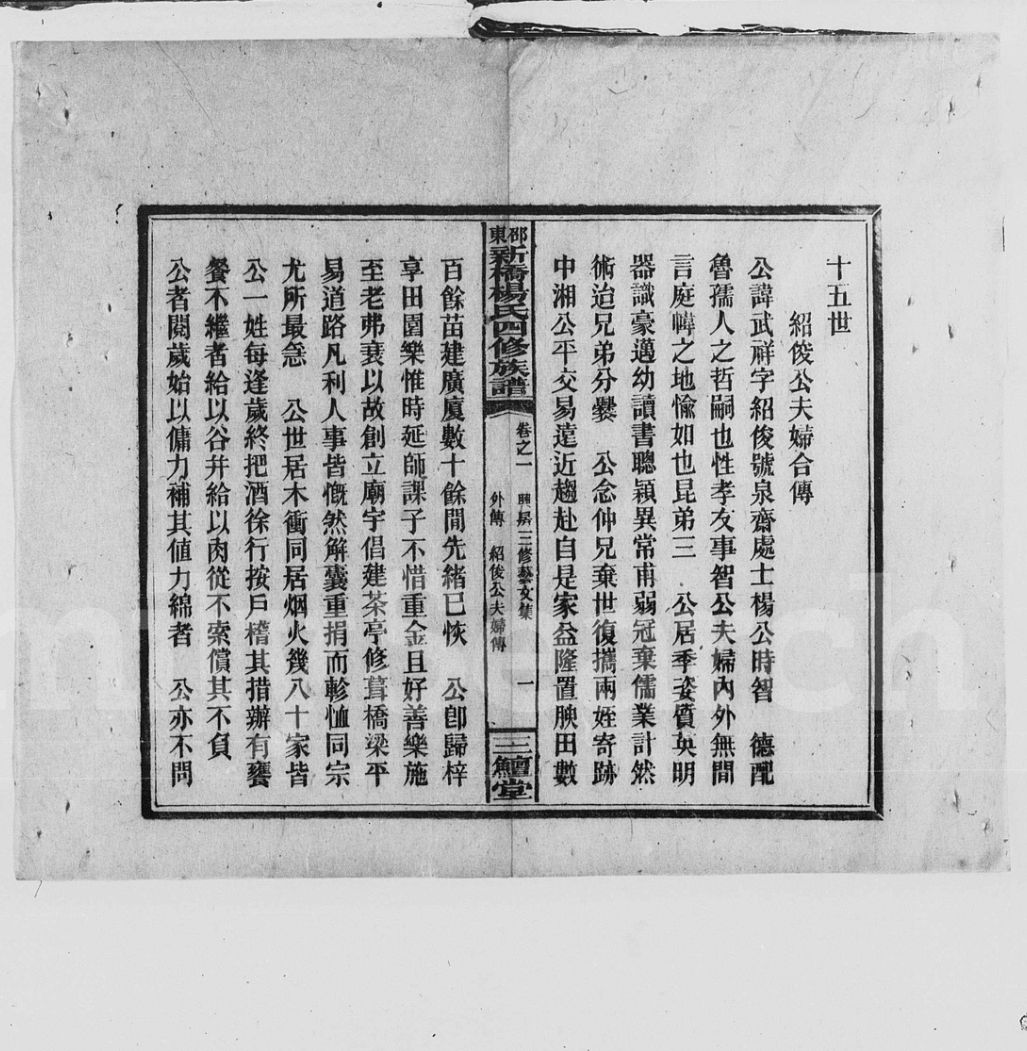 十五世
紹俊公夫婦合傳
公諱武祥字紹俊號泉齋處士楊公時智　德配
魯孺人之哲嗣也性孝友事智公夫婦內外無間
言庭幃之地愉如也昆弟三　公居季姿質英明
器識豪邁幼讀書聰穎異常甫弱冠棄儒業計然
術迨兄弟分爨　公念仲兄棄世復攜兩姪寄跡
中湘公平交易遠近趨赴自是家益隆置腴田數
邵東
新橋楊氏四修族譜
卷之一
三修藝文集
外傳　紹俊公夫婦傳
一
三鱣堂
百餘苗建廣廈數十餘間先緒已恢　公卽歸梓
享田園樂惟時延師課子不惜重金且好善樂施
至老弗衰以故創立廟宇倡建茶亭修葺橋梁平
易道路凡利人事皆慨然解囊重捐而軫恤同宗
尤所最急　公世居木衝同居烟火幾八十家皆
公一姓每逢歲終把酒徐行按戶稽其措辦有饔
餐不繼者給以谷幷給以肉從不索償其不負
公者閱歲始以傭力補其值力綿者　公亦不問